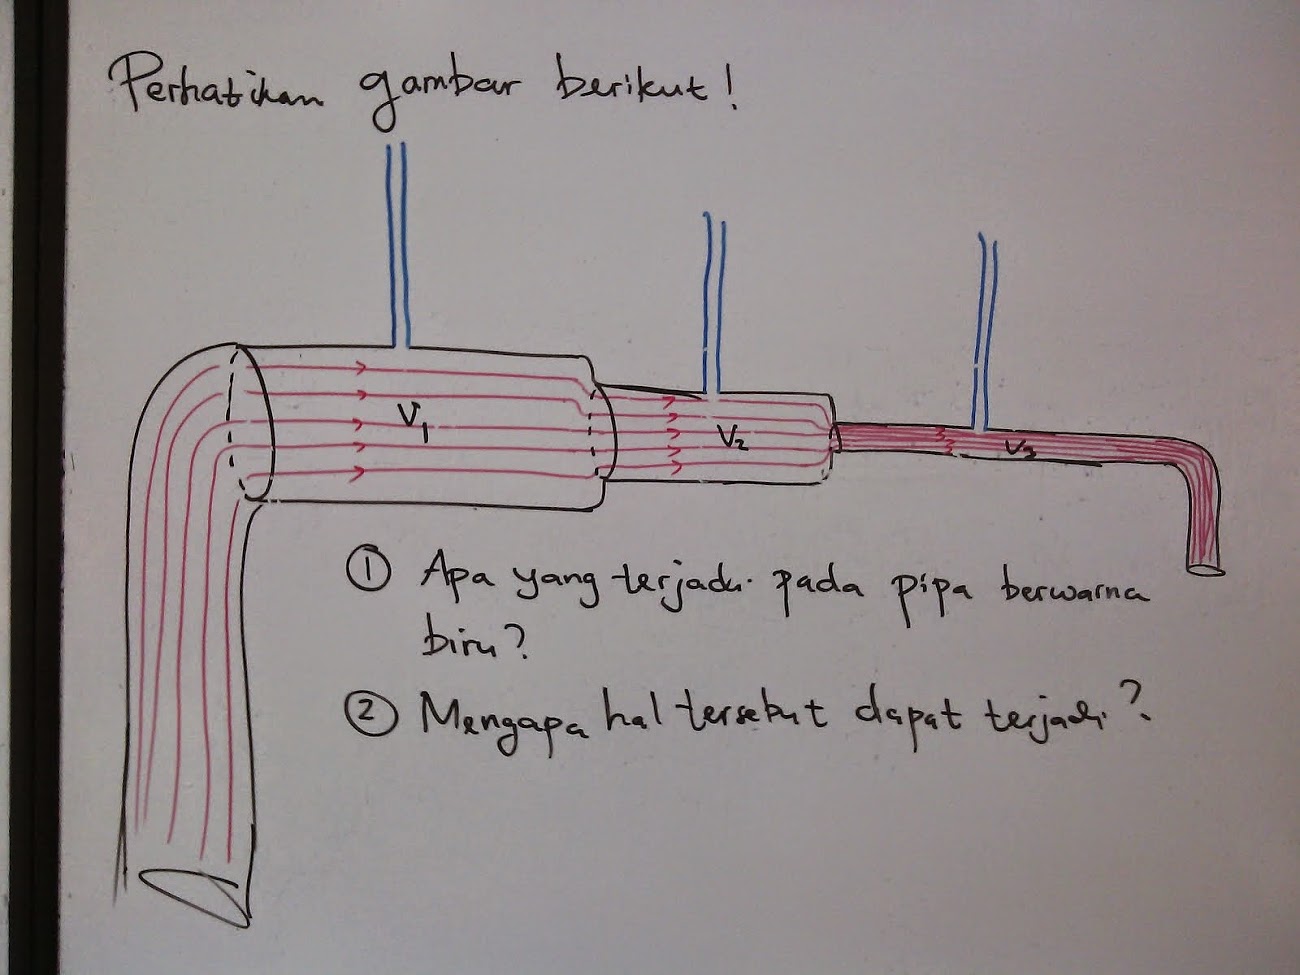 Perhatikan gambar berikut!
V₁
V₂
V₃
① Apa yang terjadi pada pipa berwarna
biru?
② Mengapa hal tersebut dapat terjadi?